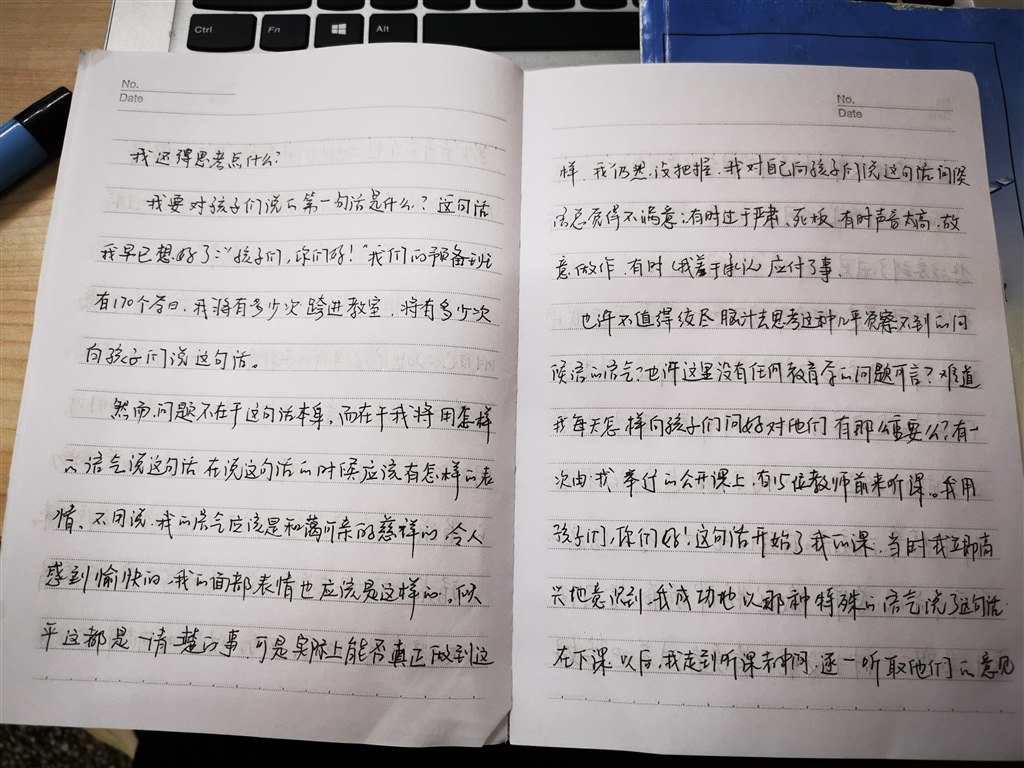 Ctrl
Fn
Alt
No.
Date
我还得思考点什么?
我要对孩子们说的第一句话是什么?这句话
我早已想好了:"孩子们,你们好!"我们的预备班
有170个学日,我将有多少次跨进教室,将有多少次
向孩子们说这句话。
然而,问题不在于这句话本身,而在于我将用怎样
的语气说这句话,在说这句话的时候应该有怎样的表
情。不用说,我的语气应该是和蔼可亲的慈祥的,令人
感到愉快的,我的面部表情也应该是这样的。似
乎这都是一清二楚的事,可是实际上能否真正做到这
No.
Date
样,我仍然没把握。我对自己向孩子们说这句话问候
的总觉得不满意:有时过于严肃、死板,有时声音太高,故
意做作,有时(我羞于承认)应付了事。
也许不值得绞尽脑汁去思考这种几乎觉察不到的问
候语的语气?也许这里没有任何教育学的问题可言?难道
我每天怎样向孩子们问好对他们有那么重要么?有一
次由我奉行的公开课上,有15位教师前来听课。我用
孩子们,你们好!这句话开始了我的课,当时我立即高
兴地意识到,我成功地以那种特殊的语气说了这句话
在下课以后,我走到听课者中间,逐一听取他们的意见